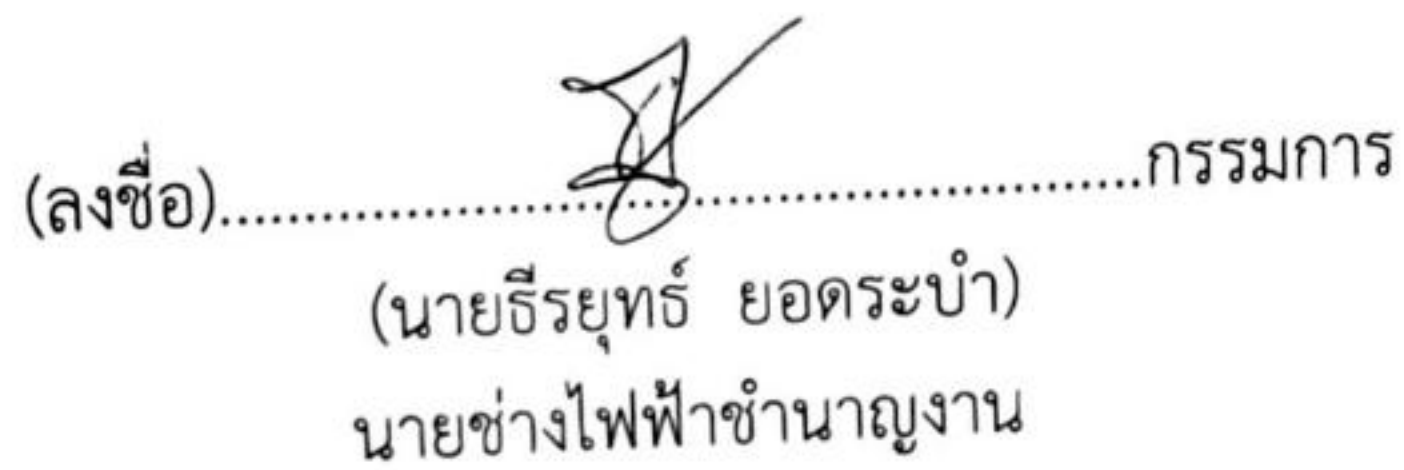 (ลงชื่อ)............................................................กรรมการ
(นายธีรยุทธ์ ยอดระบำ)
นายช่างไฟฟ้าชำนาญงาน